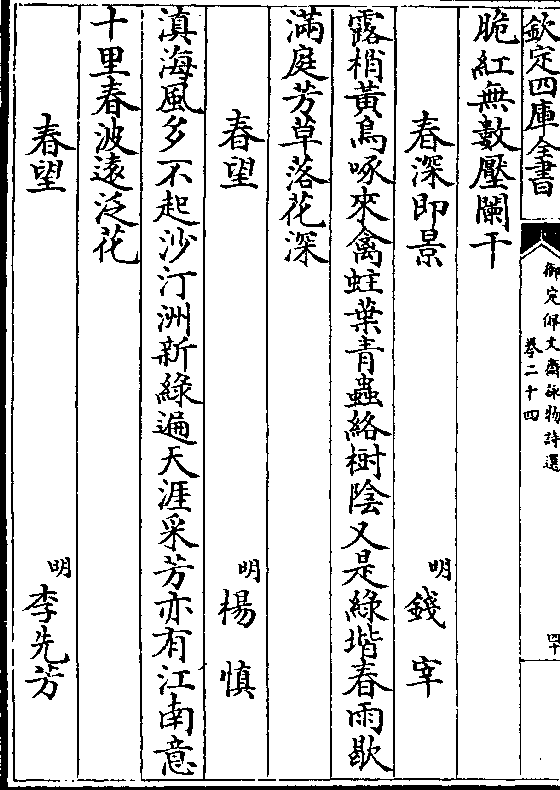 欽定四庫全書
御定佩文齋詠物詩選
卷二十四
四十
脆紅無數壓闌干
春深即景
明 錢宰
露梢黃鳥啄來禽蛀葉青蟲絡樹陰又是綠堦春雨歇
滿庭芳草落花深
春望
明 楊慎
滇海風多不起沙汀洲新綠遍天涯采芳亦有江南意
十里春波遠泛花
春望
明 李先芳